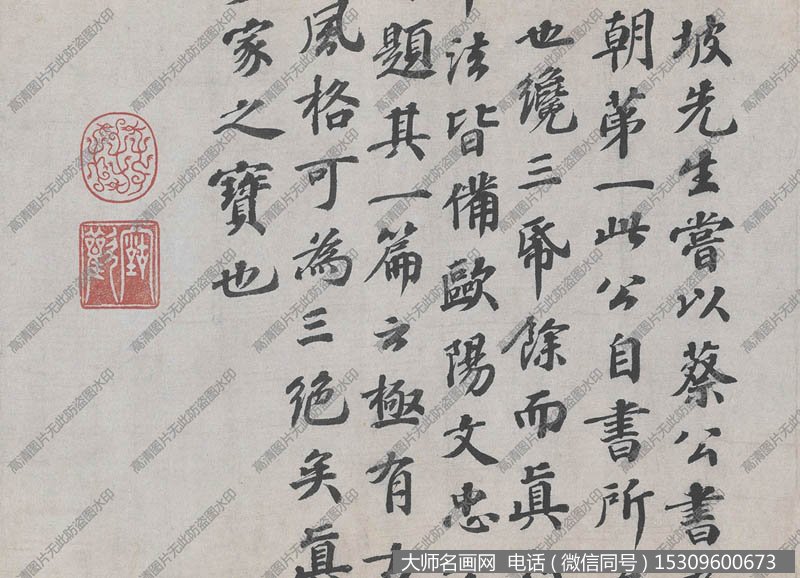 坡先生嘗以蔡公書
朝第一此公自書所
也纔三帋餘而真
法皆備歐陽文忠
題其一篇云極有古
風格可為三絕矣真
家之寶也
高清图片无此防盗图水印
大师名画网 电话（微信同号）15309600673